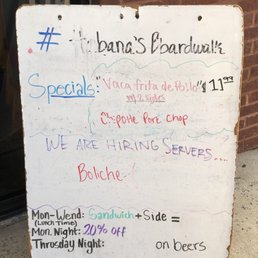 # Habana's Boardwalk
Specials: "Vaca frita de Pollo" $11.99
w/ 2 sides
Chipotle Pork Chop
WE ARE HIRING SERVERS....
Boliche
Mon-Wend: Sandwich + Side =
(Lunch Time)
Mon. Night: 20% off
Throsday Night: on beers